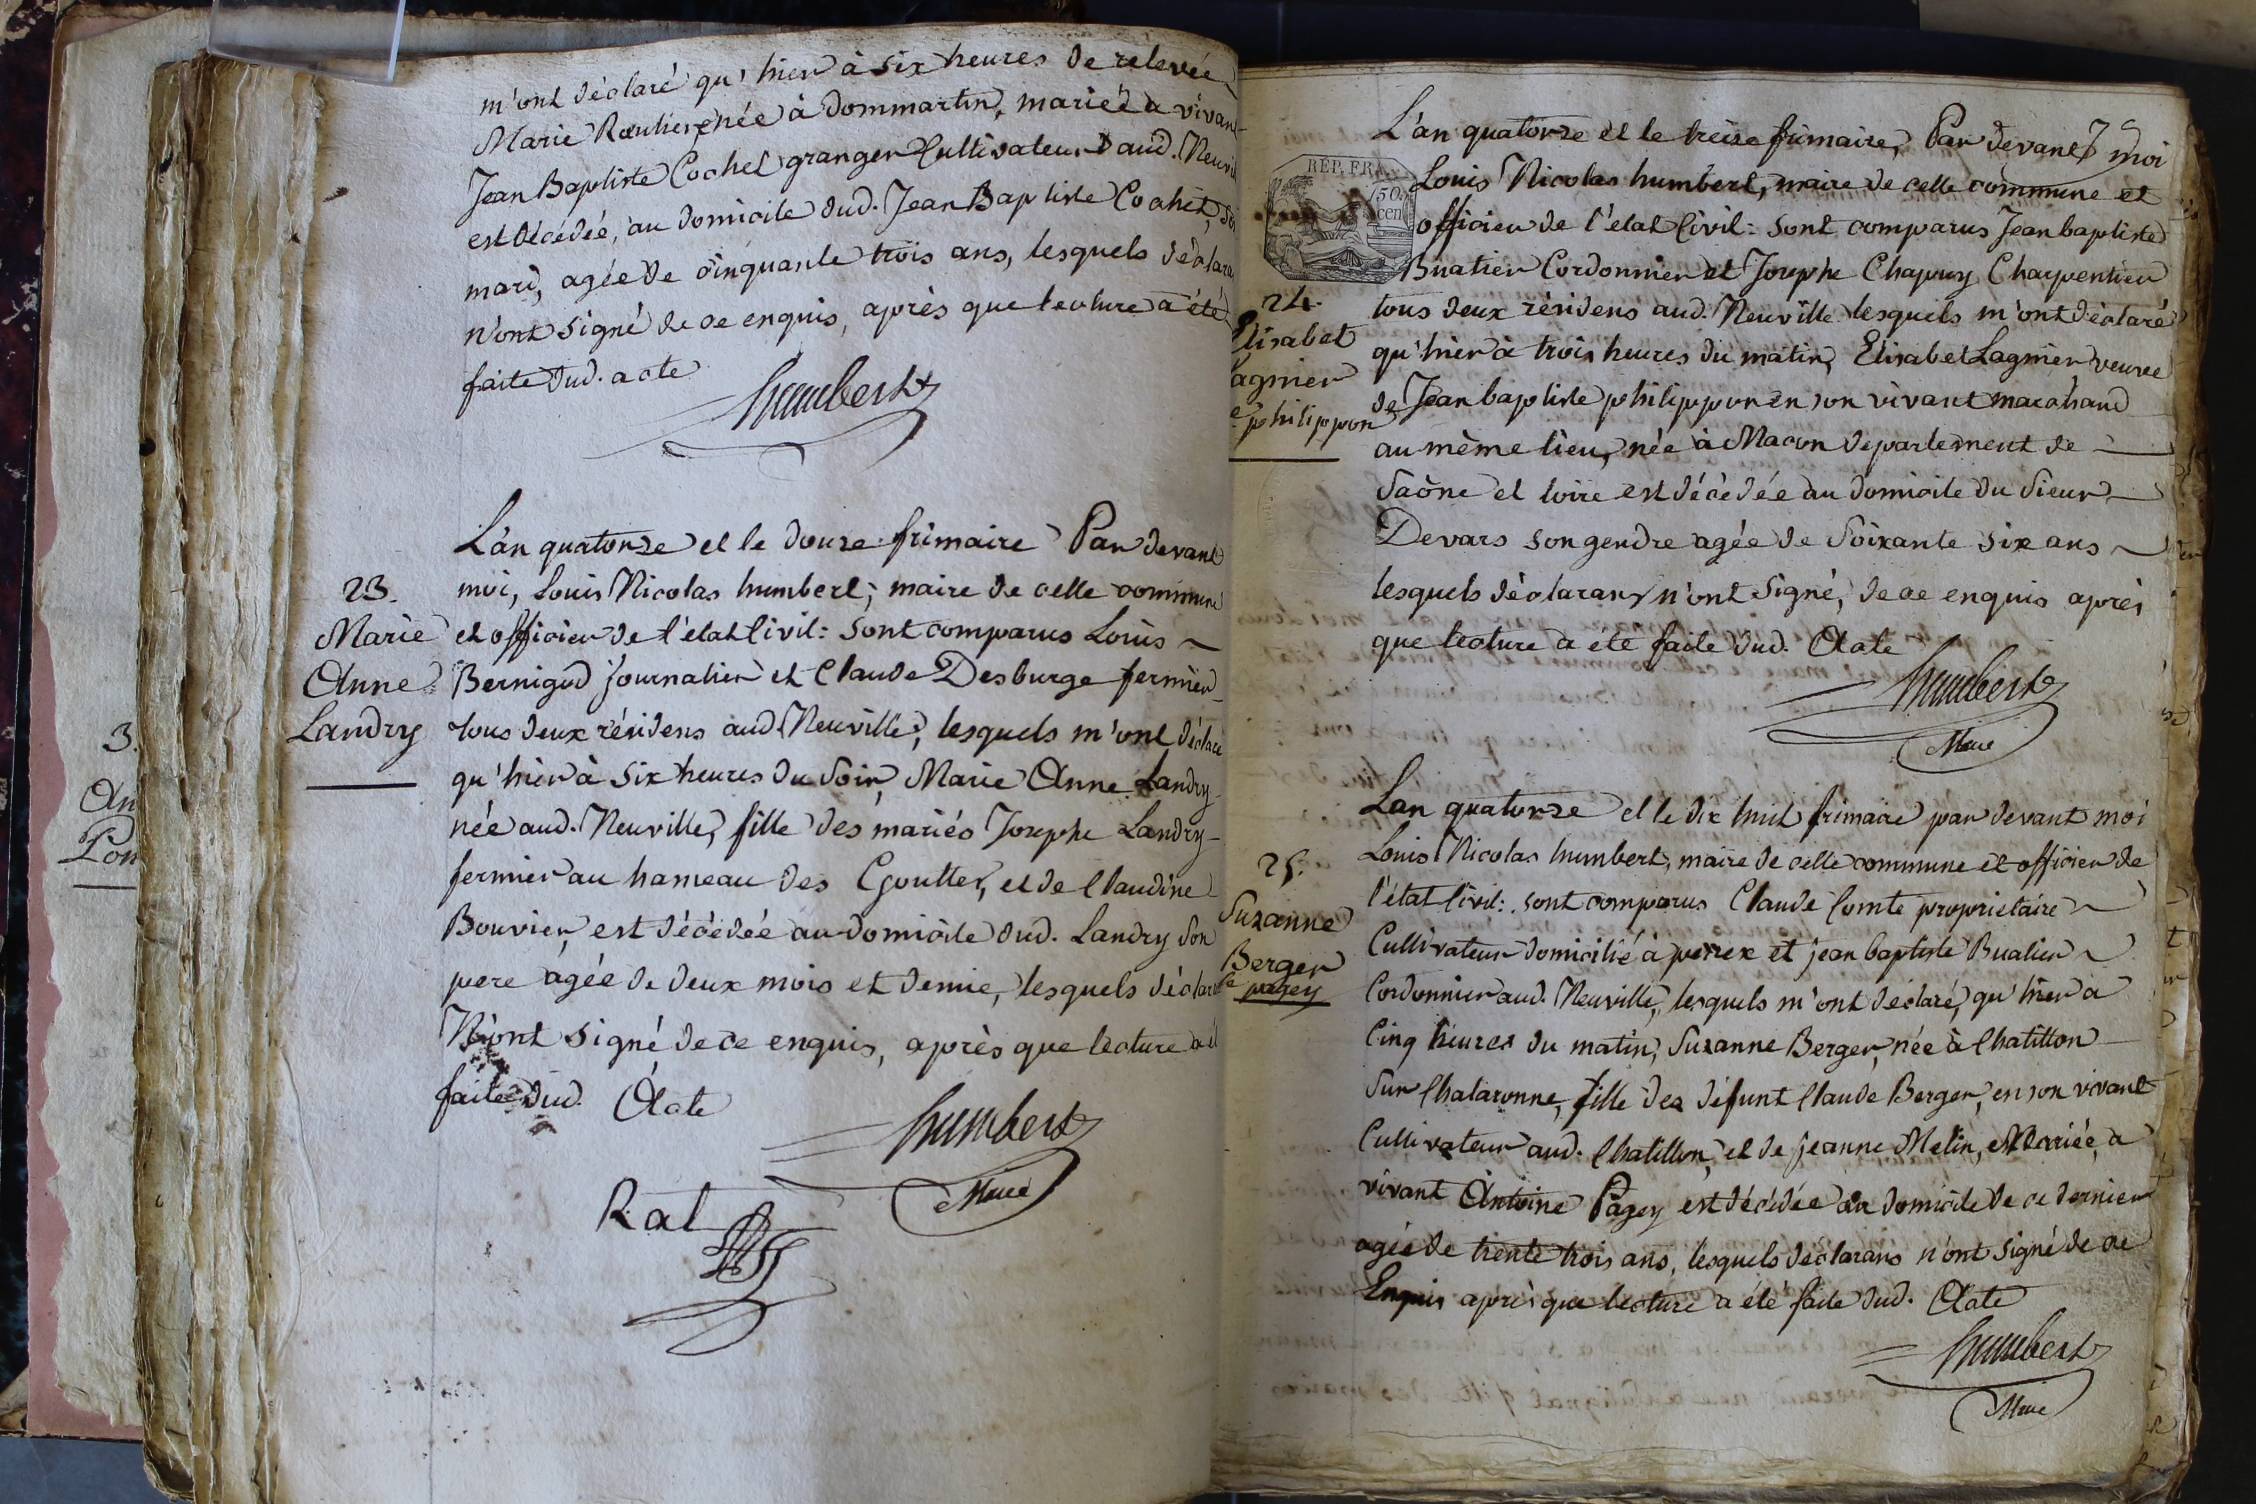 m'ont déclaré qu'hier à six heures de relevée
Marie née à dommartin, mariée a vivant
Jean Baptiste Cochet granger Cultivateur aud. Neuvil
est décédée, au domicile dud. Jean Baptiste Cochet, son
mari, agée de cinquante trois ans, lesquels déclara
n'ont signé de ce enquis, après que lecture a été
faite dud. acte
humbert
L'an quatorze et le douze frimaire Par devant
23.
Marie
Anne
Landry
moi, Louis Nicolas humbert, maire de cette commune
et officier de l'état Civil: sont comparus Louis
Bernigod journalier et Claude Desburge fermier
tous deux résidens aud. Neuville, lesquels m'ont déclaré
qu'hier à six heures du soir, Marie Anne Landry
née aud. Neuville, fille des mariés Josephe Landry
fermier au hameau des Goutter, et de Claudine
Bouvier, est décédée au domicile dud. Landry son
pere àgée de deux mois et demie, lesquels déclar
N'ont signé de ce enquis, après que lecture a é
faite dud. Acte
humbert
Maire
Rat
L'an quatorze et le treize frimaire, Par devant moi
REP. FRA.
50
cen
Louis Nicolas humbert, maire de cette commune et
officier de l'état Civil: sont comparus Jean baptiste
Buatier Cordonnier et Josephe Chapuy Charpentier
24.
Elisabet
Lagnier
e philippon
tous deux résidens aud. Neuville lesquels m'ont déclaré
qu'hier à trois heures du matin, Elisabet Lagnier veuve
de Jean baptiste philippon en son vivant marchand
au même lieu, née à Macon departement de
Saône et loire est décédée au domicile du Sieur
Devars son gendre agée de Soixante six ans
lesquels déclarans n'ont signé, de ce enquis après
que lecture a été faite dud. Acte
humbert
Maire
L'an quatorze et le dix huit frimaire par devant moi
25.
Suzanne
Berger
e pagey
Louis Nicolas humbert, maire de cette commune et officier de
l'état Civil: sont comparus Claude Comte propriétaire
Cultivateur domicilié à perrex et jean baptiste Buatier
Cordonnier aud. Neuville, lesquels m'ont déclaré, qu'hier a
Cinq heures du matin, Suzanne Berger, née à Chatillon
Sur Chalaronne, fille des défunt Claude Berger, en son vivant
Cultivateur aud. Chatillon, et de jeanne Melin, Mariée, a
vivant Antoine Pagey est décédée au domicile de ce dernier
agée de trente trois ans, lesquels déclarans n'ont signé de ce
Enquis après que lecture a été faite dud. Acte
humbert
Maire
3.
An